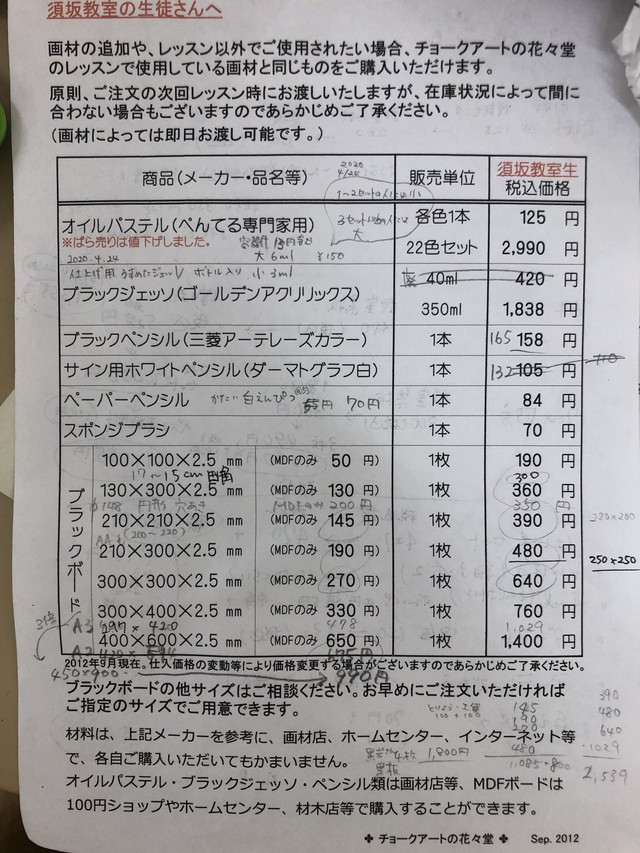 須坂教室の生徒さんへ
画材の追加や、レッスン以外でご使用されたい場合、チョークアートの花々堂
のレッスンで使用している画材と同じものをご購入いただけます。
原則、ご注文の次回レッスン時にお渡しいたしますが、在庫状況によって間に
合わない場合もございますのであらかじめご了承ください。
(画材によっては即日お渡し可能です。)
2020
4/24
商品(メーカー・品名等) 販売単位 須坂教室生
税込価格
オイルパステル(ぺんてる専門家用) 各色1本 125 円
※ばら売りは値下げしました。 大 6ml ¥150 22色セット 2,990 円
2020.4.24
ボトル入り 小 3ml 40ml 420 円
ブラックジェッソ(ゴールデンアクリリックス)
350ml 1,838 円
ブラックペンシル(三菱アーテレーズカラー) 1本 165 158 円
サイン用ホワイトペンシル(ダーマトグラフ白) 1本 132 105 円
ペーパーペンシル かたい 白えんぴつ 70円 1本 84 円
スポンジブラシ 1本 70 円
ブラックボード
100×100×2.5 mm (MDFのみ 50 円) 1枚 190 円
17~15cm 円形 300
130×300×2.5 mm (MDFのみ 130 円) 1枚 360 円
円形 穴あき MDFのみ 200円 350 円
210×210×2.5 mm (MDFのみ 145 円) 1枚 390 円 220×200
(200~220)
210×300×2.5 mm (MDFのみ 190 円) 1枚 480 円
250×250
300×300×2.5 mm (MDFのみ 270 円) 1枚 640 円
300×400×2.5 mm (MDFのみ 330 円) 1枚 760 円
3倍 A3 297×420 478 1,029
400×600×2.5 mm (MDFのみ 650 円) 1枚 1,400 円
A2
2012年9月現在。仕入価格の変動等により価格変更する場合がございますのであらかじめご了承ください。
450×900 990円
ブラックボードの他サイズはご相談ください。お早めにご注文いただければ
ご指定のサイズでご用意できます。
100+100
145
390
480
640
1029
2,539
材料は、上記メーカーを参考に、画材店、ホームセンター、インターネット等
で、各自ご購入いただいてもかまいません。
1,800円
480
オイルパステル・ブラックジェッソ・ペンシル類は画材店等、MDFボードは
100円ショップやホームセンター、材木店等で購入することができます。
✤ チョークアートの花々堂 ✤ Sep. 2012